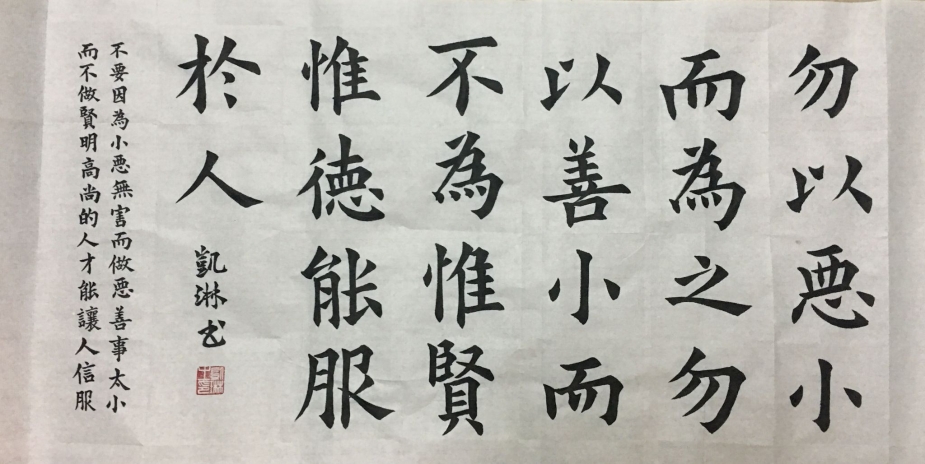 勿以恶小
而為之勿
以善小而
不為惟賢
惟德能服
於人
凱淋书
不要因為小恶無害而做恶善事太小
而不做賢明高尚的人才能讓人信服